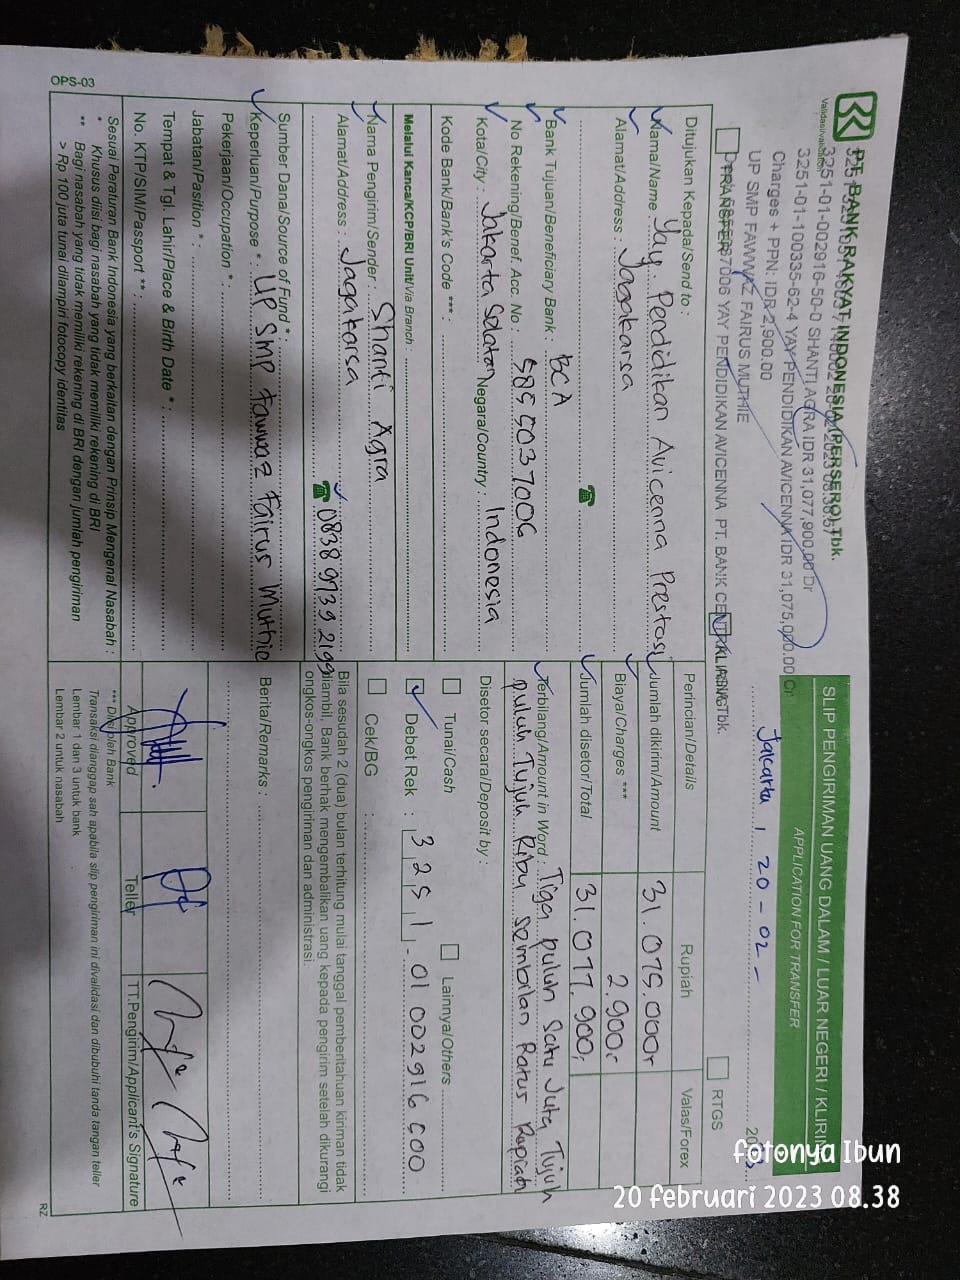 OPS-03
PT. BANK RAKYAT INDONESIA (PERSERO) Tbk.
3251-01-002916-50-0 SHANTI AGRA IDR 31,077,900.00 Dr
3251-01-100335-62-4 YAY PENDIDIKAN AVICENNA IDR 31,075,000.00 Cr
Charges + PPN: IDR 2,900.00
UP SMP FAWWAZ FAIRUS MUTHIE
YAY PENDIDIKAN AVICENNA PT. BANK CENTRAL ASIA Tbk.
SLIP PENGIRIMAN UANG DALAM / LUAR NEGERI / KLIRING
APPLICATION FOR TRANSFER
Jakarta, 20 - 02 -
TRANSFER
KLIRING
RTGS
Ditujukan Kepada/Send to :
Nama/Name : Yay. Pendidikan Avicenna Prestasi
Alamat/Address : Jagakarsa
Bank Tujuan/Beneficiary Bank : BCA
No Rekening/Benef. Acc. No : 5855037006
Kota/City : Jakarta Selatan Negara/Country : Indonesia
Kode Bank/Bank's Code *** :
Melalui Kanca/KCP/BRI Unit/Via Branch :
Nama Pengirim/Sender : Shanti Agra
Alamat/Address : Jagakarsa
0838 9739 2199
Sumber Dana/Source of Fund * :
Keperluan/Purpose * : UP SMP Fawwaz Fairus Muthie
Pekerjaan/Occupation * :
Jabatan/Position * :
Tempat & Tgl. Lahir/Place & Birth Date * :
No. KTP/SIM/Passport ** :
Sesuai Peraturan Bank Indonesia yang berkaitan dengan Prinsip Mengenal Nasabah :
* Khusus diisi bagi nasabah yang tidak memiliki rekening di BRI
** Bagi nasabah yang tidak memiliki rekening di BRI dengan jumlah pengiriman
> Rp 100 juta tunai dilampiri fotocopy identitas
Perincian/Details Rupiah Valas/Forex
Jumlah dikirim/Amount 31.075.000,-
Biaya/Charges *** 2.900,-
Jumlah disetor/Total 31.077.900,-
Terbilang/Amount in Word : Tiga puluh Satu Juta Tujuh
puluh Tujuh Ribu sembilan Ratus Rupiah
Disetor secara/Deposit by :
Tunai/Cash
Lainnya/Others
Debet Rek : 3251.01 002916 500
Cek/BG :
Bila sesudah 2 (dua) bulan terhitung mulai tanggal pemberitahuan kiriman tidak
diambil, Bank berhak mengembalikan uang kepada pengirim setelah dikurangi
ongkos-ongkos pengiriman dan administrasi.
Berita/Remarks :
Approved Teller TT.Pengirim/Applicant's Signature
*** Diisi oleh Bank
Transaksi dianggap sah apabila slip pengiriman ini divalidasi dan dibubuhi tanda tangan teller
Lembar 1 dan 3 untuk bank
Lembar 2 untuk nasabah
RZ
fotonya Ibun
20 februari 2023 08.38